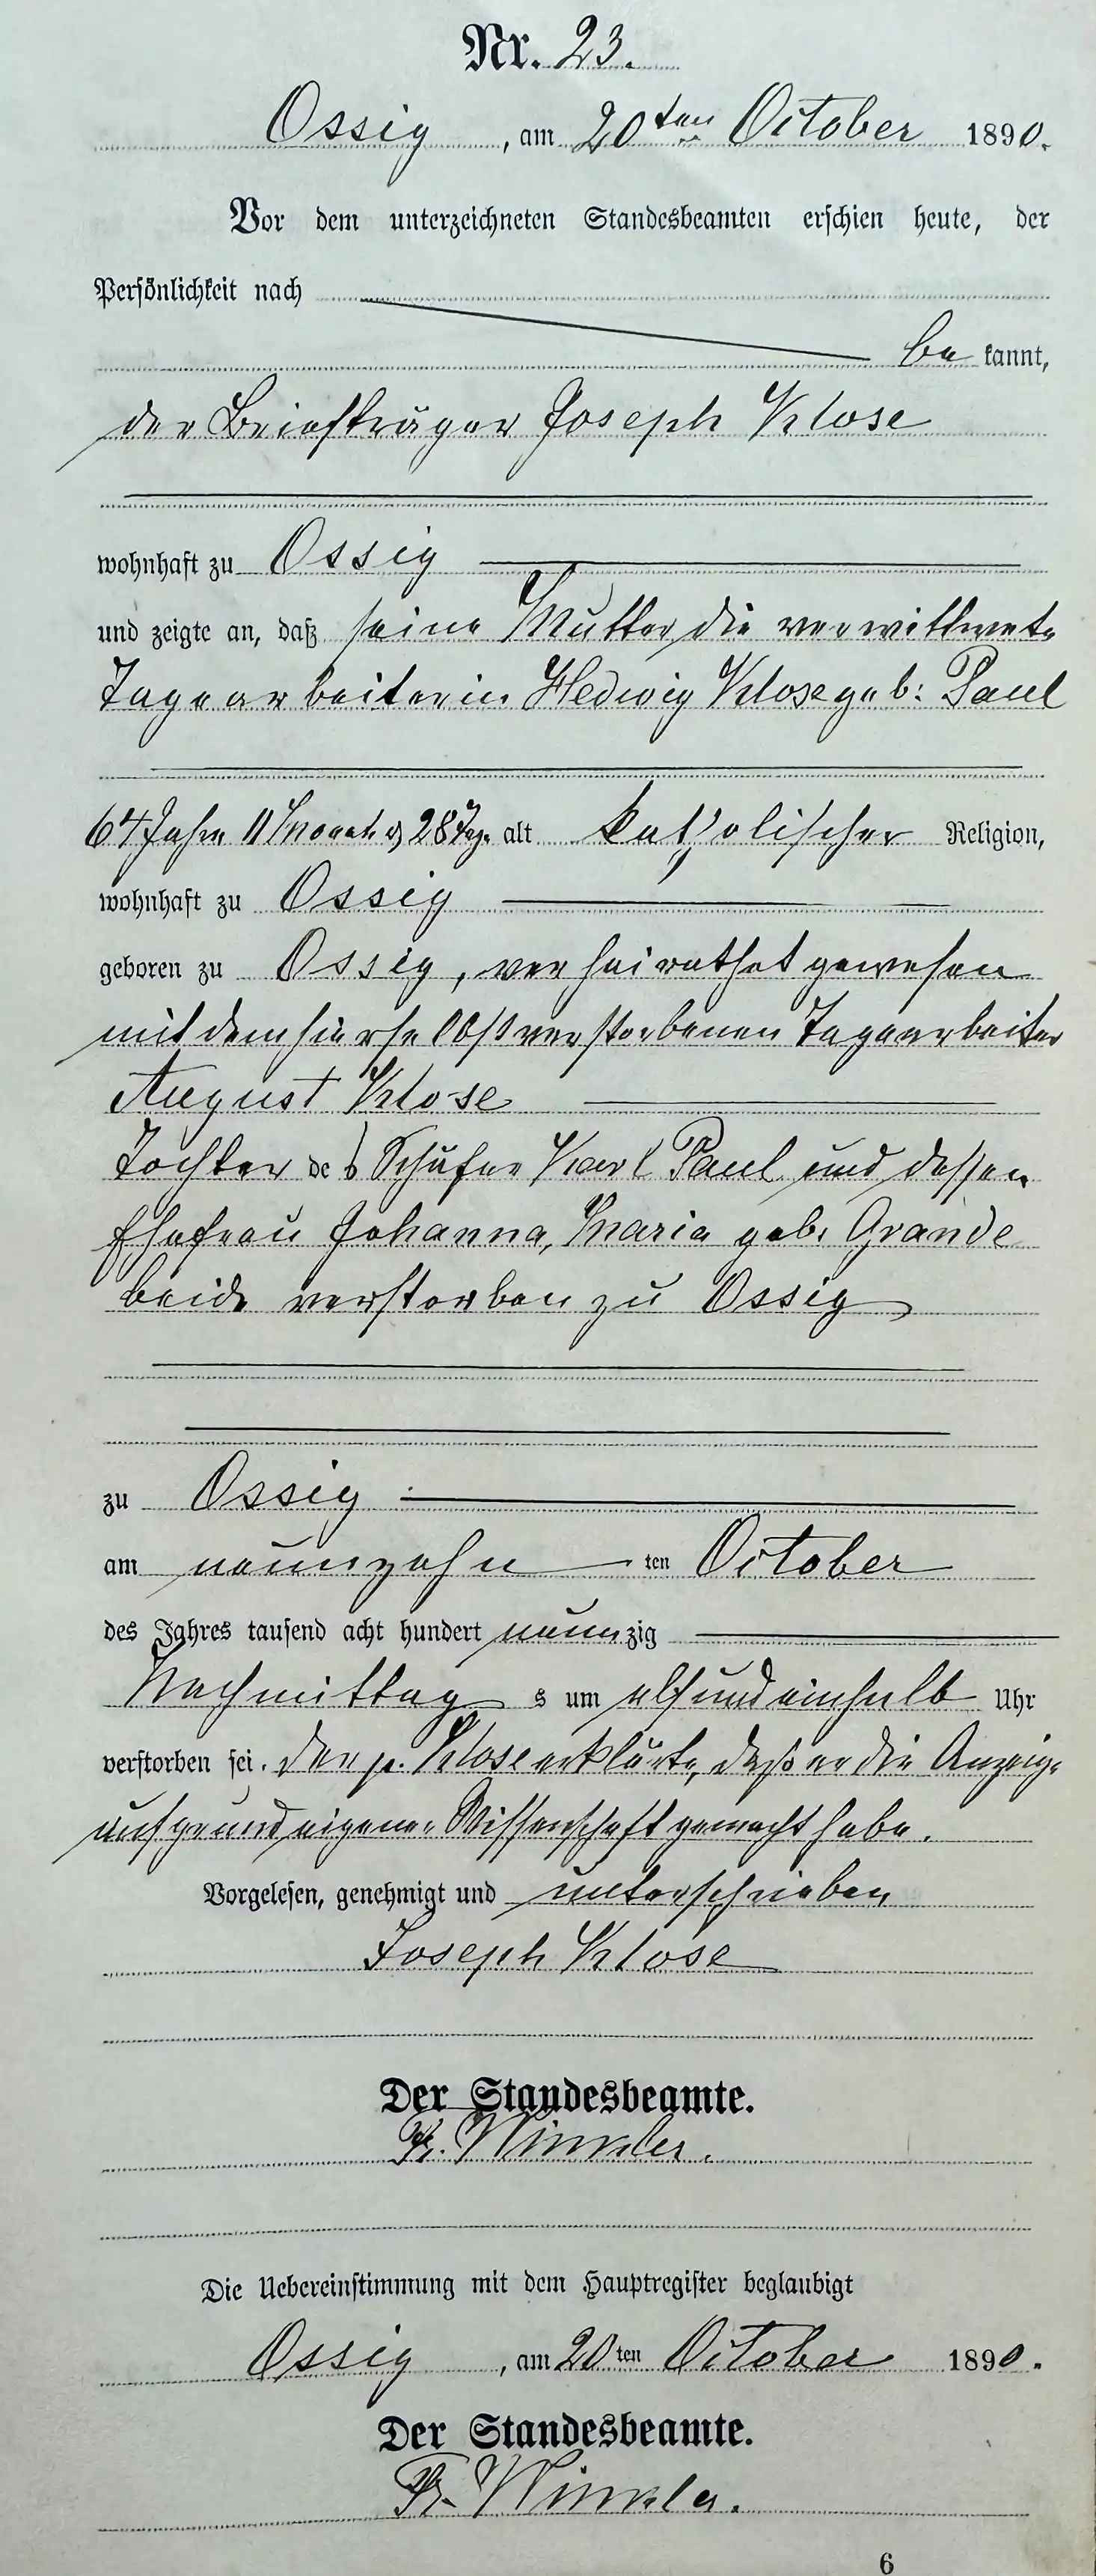 Nr. 23.
Ossig, am 20ten October 1890.
Vor dem unterzeichneten Standesbeamten erschien heute, der
Persönlichkeit nach
be kannt,
der Briefträger Joseph Klose
wohnhaft zu Ossig
und zeigte an, daß seine Mutter die verwittwete
Tagearbeiterin Hedwig Klose geb: Paul
64 Jahre 11 Monate 28 Tage alt katholischer Religion,
wohnhaft zu Ossig
geboren zu Ossig, verheirathet gewesen
mit dem hierselbst verstorbenen Tagearbeiter
August Klose
Tochter des Schäfer Karl Paul und dessen
Ehefrau Johanna, Maria geb. Grande
beide verstorben zu Ossig
zu Ossig
am neunzehn ten October
des Jahres tausend acht hundert neunzig
Nachmittag s um elf und einhalb Uhr
verstorben sei. Der p. Klose erklärte, daß er die Anzeige
auf grund eigener Wissenschaft gemacht habe.
Vorgelesen, genehmigt und unterschrieben
Joseph Klose
Der Standesbeamte.
Fr. Winkler.
Die Uebereinstimmung mit dem Hauptregister beglaubigt
Ossig, am 20ten October 1890.
Der Standesbeamte.
Fr. Winkler.
6